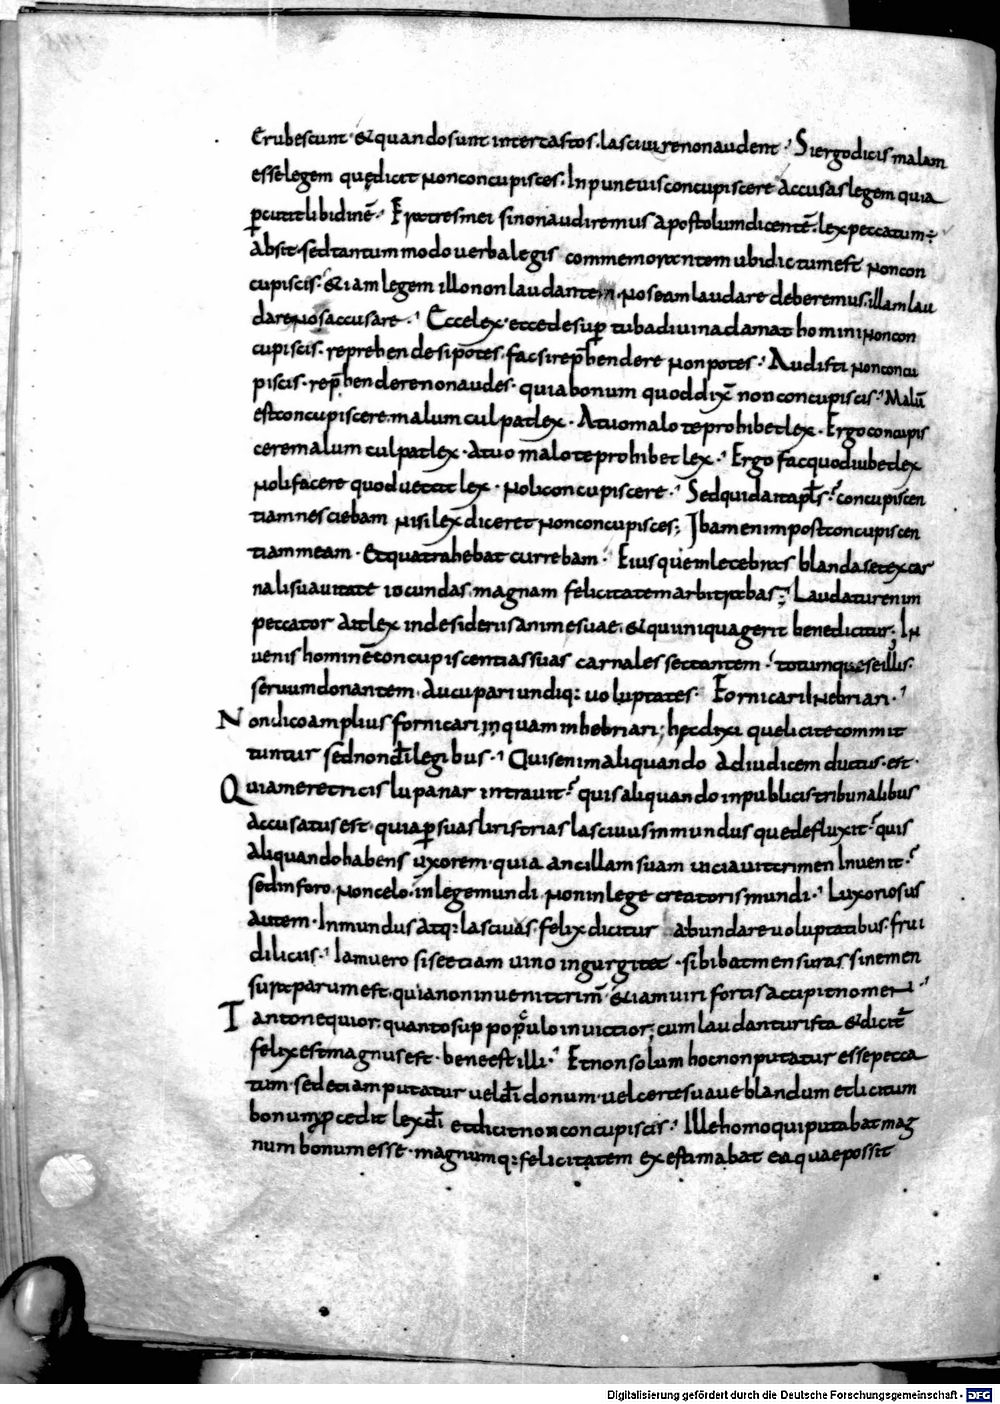 Erubescunt · & quando sunt inter castos · lasciuirenonaudent · Siergodicis malam
esselegem quędicit Nonconcupisces · Inpuneuisconcupiscere Accusaslegem quia
p̱cutitlibidinē · Fratresmei sinonaudiremus apostolumdicentē · lexpeccatum ÷
Absit · sedtantummodo uerbalegis commemorantem ubidictumest Noncon
cupiscis · & iamlegem illonon laudantem · Noseamlaudare deberemus · illamlau
dareNosaccusare · Eccelex · eccedesup̱ tubadiuinaclamat hominiNoncon
cupiscis · reprehendesipotes · facsirep̄hendere Nonpotes · Audisti Nonconcu
piscis · rep̄henderenonaudes · quiabonum quoddix̄ nonconcupiscis · Malū
estconcupiscere · malumculpatlex · Atuomalo teprohibetlex · Ergoconcupis
ceremalum culpatlex · Atuo malo teprohibet lex · Ergo facquodiubetlex
Nolifacere quoduetat lex · Noliconcupiscere · Sedquidaitapl̄s · concupiscen
tiamnesciebam Nisilex diceret Nonconcupisces ; Ibamenimpostconcupiscen
tiammeam · Etquatrahebat currebam · Eiusquęinlecebras blandasetexcar
nalisuauitate iocundas · magnam felicitatemarbitrabas ; Laudaturenim
peccator aitlex indesideriisanimesuae · & quiiniquagerit benedicitur ; IN
uenishominēconcupiscentiassuas carnales sectantem · totumqueseillis ·
seruumdonantem · Aucupariundiq: uoluptates · FornicariINebriari ·
Nondicoamplius fornicari inquaminhebriari ; hęcdixi quelicitecommit
tuntur sednondīlegibus · Quisenimaliquando adiudicem ductus · est ·
Quiameretricis lupanar intrauit · quisaliquando inpublicistribunalibus
Accusatusest · quiap̱suasliristrias lasciuusinmundus quedefluxit · quis
Aliquandohabens uxorem · quia ancillam suam uiciauitcrimen Inuenit ·
sedinforo · Noncelo · inlegemundi · Noninlege creatorismundi · Luxoriosus
autem · Inmundus atq: lasciuas · felix dicitur abundareuoluptatibus · frui
diliciis · Iamuero siseetiam uino ingurgitet · sibibatmensuras sinemen
suraparumest · quianoninuenitcrim̄ · & iamuiri fortisaccipitnomen ·
Tantonequior · quantosup populo inuictior ; cumlaudanturista & dicit̄
felixestmagnusest · beneestilli · Etnonsolum hocnonputatur essepecca
tum · sedetiamputatur ueldī donum · uelcertesuaue blandum etlicitum
bonump̱cedit lexdī etdicitnonconcupiscis · Illehomoquiputabatmag
num bonumesse · magnumq: felicitatem existimabat eaquaepossit
Digitalisierung gefördert durch die Deutsche Forschungsgemeinschaft · DFG